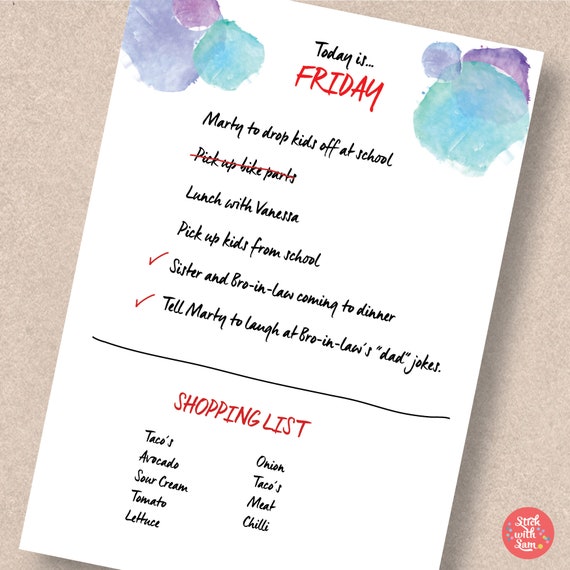 Today is...
FRIDAY
Marty to drop kids off at school
Pick up bike parts
Lunch with Vanessa
Pick up kids from school
Sister and Bro-in-law coming to dinner
Tell Marty to laugh at Bro-in-law's "dad" jokes.
SHOPPING LIST
Taco's
Avocado
Sour Cream
Tomato
Lettuce
Onion
Taco's
Meat
Chilli
Stick
with
Sam